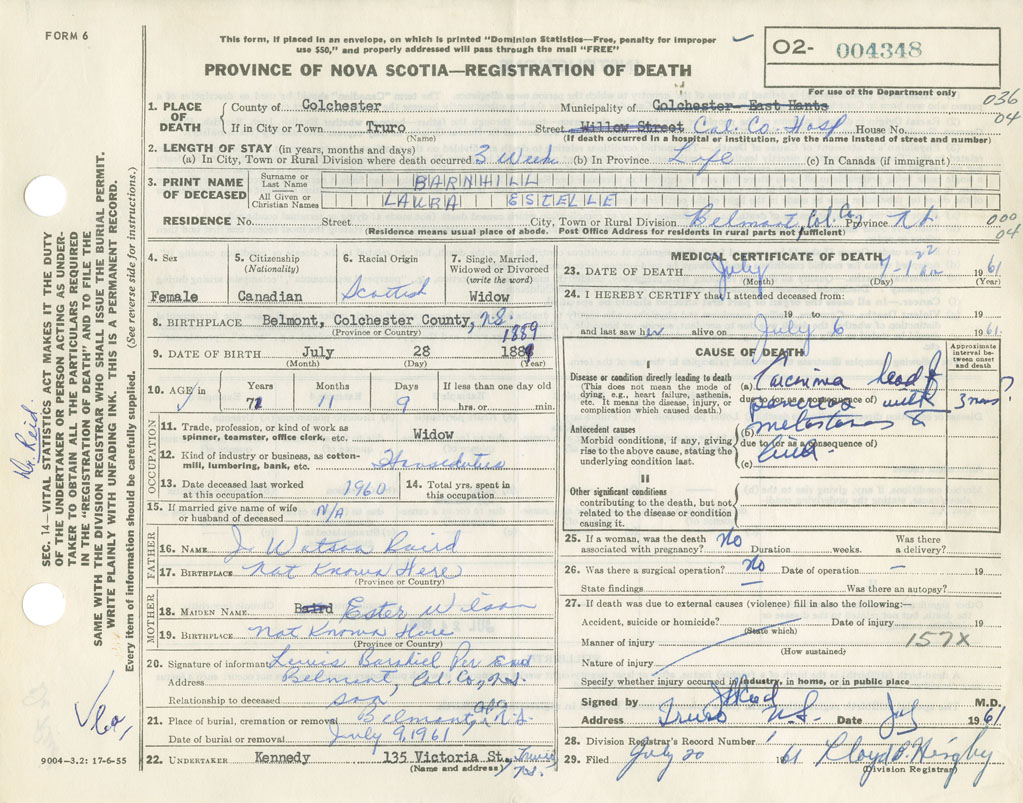 FORM 6
This form, if placed in an envelope, on which is printed "Dominion Statistics—Free, penalty for improper
use $50," and properly addressed will pass through the mail "FREE"
O2- 004348
PROVINCE OF NOVA SCOTIA—REGISTRATION OF DEATH
For use of the Department only
036
04
1. PLACE OF DEATH
County of Colchester Municipality of Colchester East Hants
If in City or Town Truro Street Willow Street Col. Co. Hosp House No.
(Name) (If death occurred in a hospital or institution, give the name instead of street and number)
2. LENGTH OF STAY (in years, months and days)
(a) In City, Town or Rural Division where death occurred 3 Weeks (b) In Province Life (c) In Canada (if immigrant)
3. PRINT NAME OF DECEASED
Surname or Last Name BARNHILL
All Given or Christian Names LAURA ESTELLE
RESIDENCE No. Street City, Town or Rural Division Belmont, Col. Co. Province N.S.
(Residence means usual place of abode. Post Office Address for residents in rural parts not sufficient)
000
04
4. Sex
Female
5. Citizenship
(Nationality)
Canadian
6. Racial Origin
Scottish
7. Single, Married,
Widowed or Divorced
(write the word)
Widow
8. BIRTHPLACE Belmont, Colchester County, N.S.
(Province or Country)
1889
9. DATE OF BIRTH July 28 1889
(Month) (Day) (Year)
10. AGE in Years Months Days If less than one day old
71 11 9 hrs. or min.
OCCUPATION
11. Trade, profession, or kind of work as
spinner, teamster, office clerk, etc. Widow
12. Kind of industry or business, as cotton-
mill, lumbering, bank, etc. Houseduties
13. Date deceased last worked
at this occupation 1960
14. Total yrs. spent in
this occupation
15. If married give name of wife
or husband of deceased N/A
FATHER
16. NAME J. Watson Baird
17. BIRTHPLACE Not Known Here
(Province or Country)
MOTHER
18. MAIDEN NAME Baird Ester Wilson
19. BIRTHPLACE Not Known Here
(Province or Country)
20. Signature of informant Lewis Per
Address Belmont, Col. Co., N.S.
Relationship to deceased son
21. Place of burial, cremation or removal Belmont, Col. Co. N.S.
Date of burial or removal July 9, 1961
22. UNDERTAKER Kennedy 135 Victoria St., Truro N.S.
(Name and address)
MEDICAL CERTIFICATE OF DEATH
23. DATE OF DEATH July 7-1 22 am 1961
(Month) (Day) (Year)
24. I HEREBY CERTIFY that I attended deceased from:
19 to 19
and last saw her alive on July 6 1961.
CAUSE OF DEATH
Approximate
interval be-
tween onset
and death
I
Disease or condition directly leading to death
(This does not mean the mode of
dying, e.g., heart failure, asthenia,
etc. It means the disease, injury, or
complication which caused death.)
(a) Carcinima head of
due to (or as a consequence of)
pancreas with 3 mos?
Antecedent causes
Morbid conditions, if any, giving
rise to the above cause, stating the
underlying condition last.
(b) metastases to
due to (or as a consequence of)
liver.
(c)
II
Other significant conditions
contributing to the death, but not
related to the disease or condition
causing it.
25. If a woman, was the death
associated with pregnancy? No Duration weeks. Was there
a delivery?
26. Was there a surgical operation? No Date of operation — 19
State findings — Was there an autopsy?
27. If death was due to external causes (violence) fill in also the following:—
Accident, suicide or homicide? Date of injury 19
(State which)
Manner of injury 157X
(How sustained)
Nature of injury
Specify whether injury occurred in industry, in home, or in public place
Signed by Reid M.D.
Address Truro N.S. Date July 1961
28. Division Registrar's Record Number
29. Filed July 20 1961 Lloyd B.
(Division Registrar)
SEC. 14—VITAL STATISTICS ACT MAKES IT THE DUTY
OF THE UNDERTAKER OR PERSON ACTING AS UNDER-
TAKER TO OBTAIN ALL THE PARTICULARS REQUIRED
IN THE "REGISTRATION OF DEATH" AND TO FILE THE
SAME WITH THE DIVISION REGISTRAR WHO SHALL ISSUE THE BURIAL PERMIT.
WRITE PLAINLY WITH UNFADING INK. THIS IS A PERMANENT RECORD.
Every item of information should be carefully supplied. (See reverse side for instructions.)
Dr. Reid
9004-3.2: 17-6-55